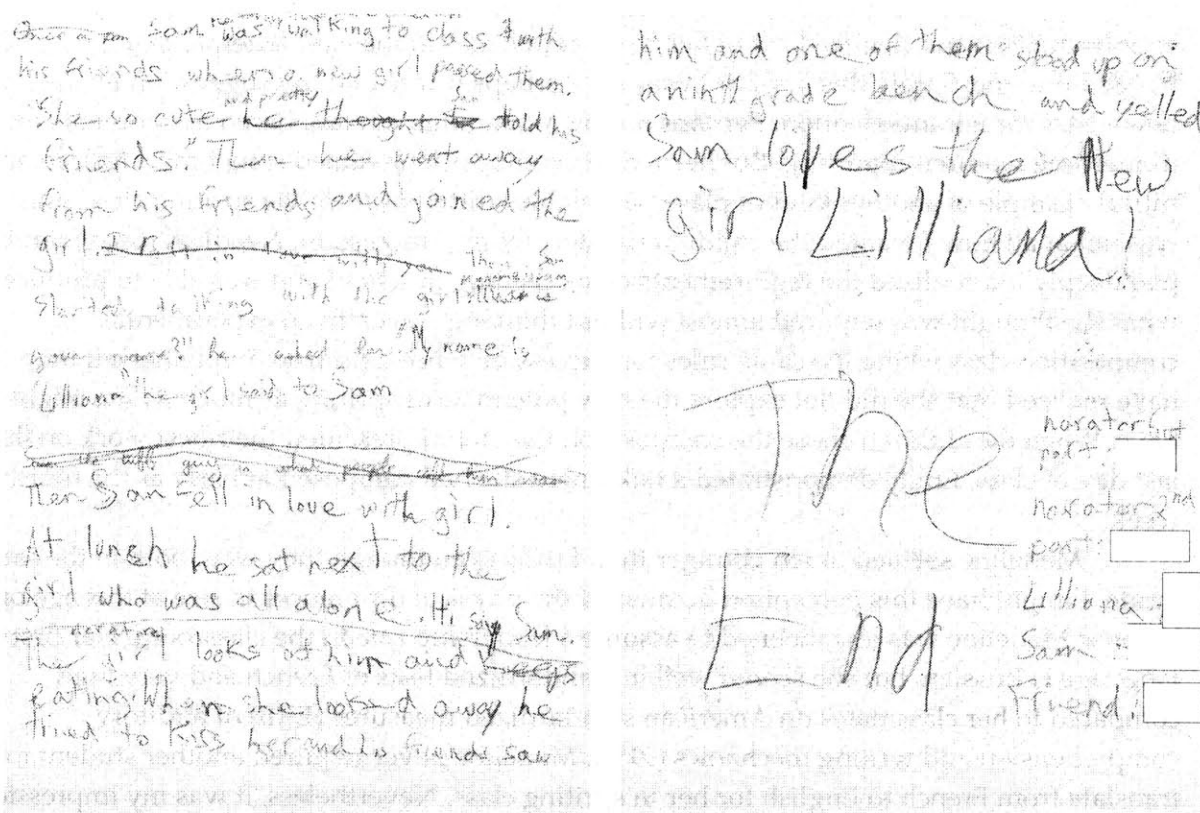 Sam was walking to class with
his friends when a new girl passed them.
"She so cute and pretty Sam told his
friends" Then he went away
from his friends and joined the
girl. Then Sam
started talking with the girl. "What is
your name?" he asked her "My name is
Lilliana" the girl said to Sam
Then Sam fell in love with girl.
At lunch he sat next to the
girl who was all alone. Hi says Sam.
norator
the girl looks at him and keeps
eating. When she looked away he
tried to kiss her and his friends saw
him and one of them stod up on
a ninth grade bench and yelled
Sam loves the New
girl Lilliana!
The
End
norator 1st
part:
norator 2nd
part:
Lilliona
Sam:
Friend: